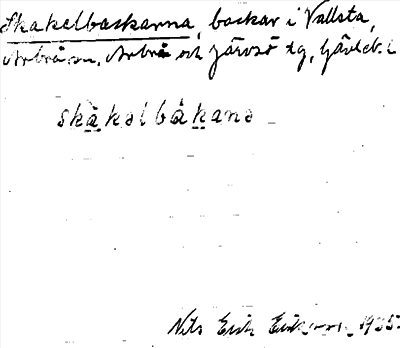 Skakelbackarna, backar i Vallsta,
Arbrå sn, Arbrå och Järvsö tg, Gävleb. l
skàkəlbákanə
Nils Erik Eriksson 1935.